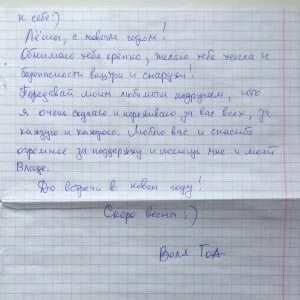 к себе!)
Лёша, с новым годом!
Обнимаю тебя крепко, желаю тебе тепла и
безопасности внутри и снаружи!
Передавай моим любимым подругам, что
я очень скучаю и переживаю за вас всех, за
каждую и каждого. Люблю вас и спасибо
огромное за поддержку и помощь мне и моей
Владе.
До встречи в новом году!
Скоро весна!)
Воля